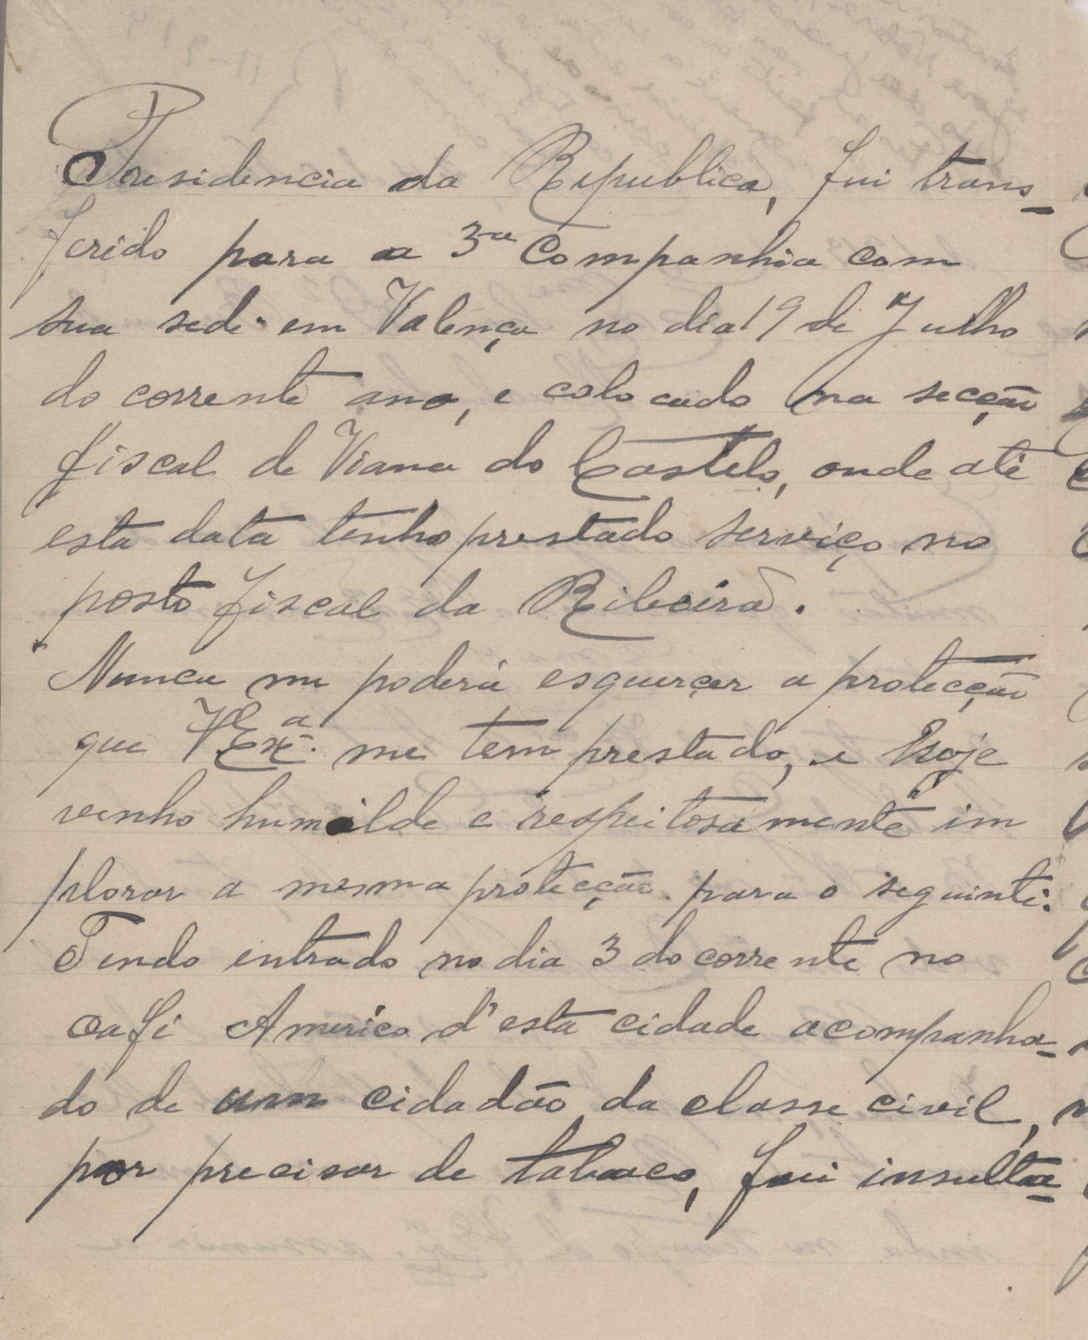 Presidencia da Republica, fui trans-
ferido para a 3ª Companhia com
sua sede em Valença no dia 19 de Julho
do corrente ano, e colocado na secção
fiscal de Viana do Castelo, onde até
esta data tenho prestado serviço no
posto fiscal da Ribeira.
Nunca me poderá esqueçer a protecção
que V Exª. me tem prestado, e hoje
venho humilde e respeitosamente im
plorar a mesma protecção para o seguinte:
Tendo entrado no dia 3 do corrente no
café Americo d'esta cidade acompanha-
do de um cidadão da classe civil,
por precisar de tabaco, fui insulta-